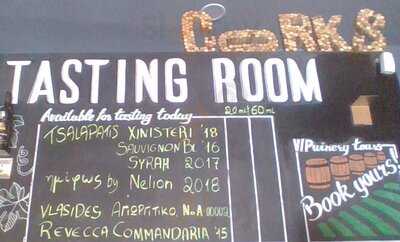 CORKS
TASTING ROOM
Available for tasting today
20ml 60ml
TSALAPATIS XINISTERI '18
SAUVIGNON BL '16
SYRAH 2017
ημίφως by Nelion 2018
VLASIDES ΑΠΟΡΡΙΤΙΚΟ, No A
REVECCA COMMANDARIA '15
VIP winery tours
Book yours!